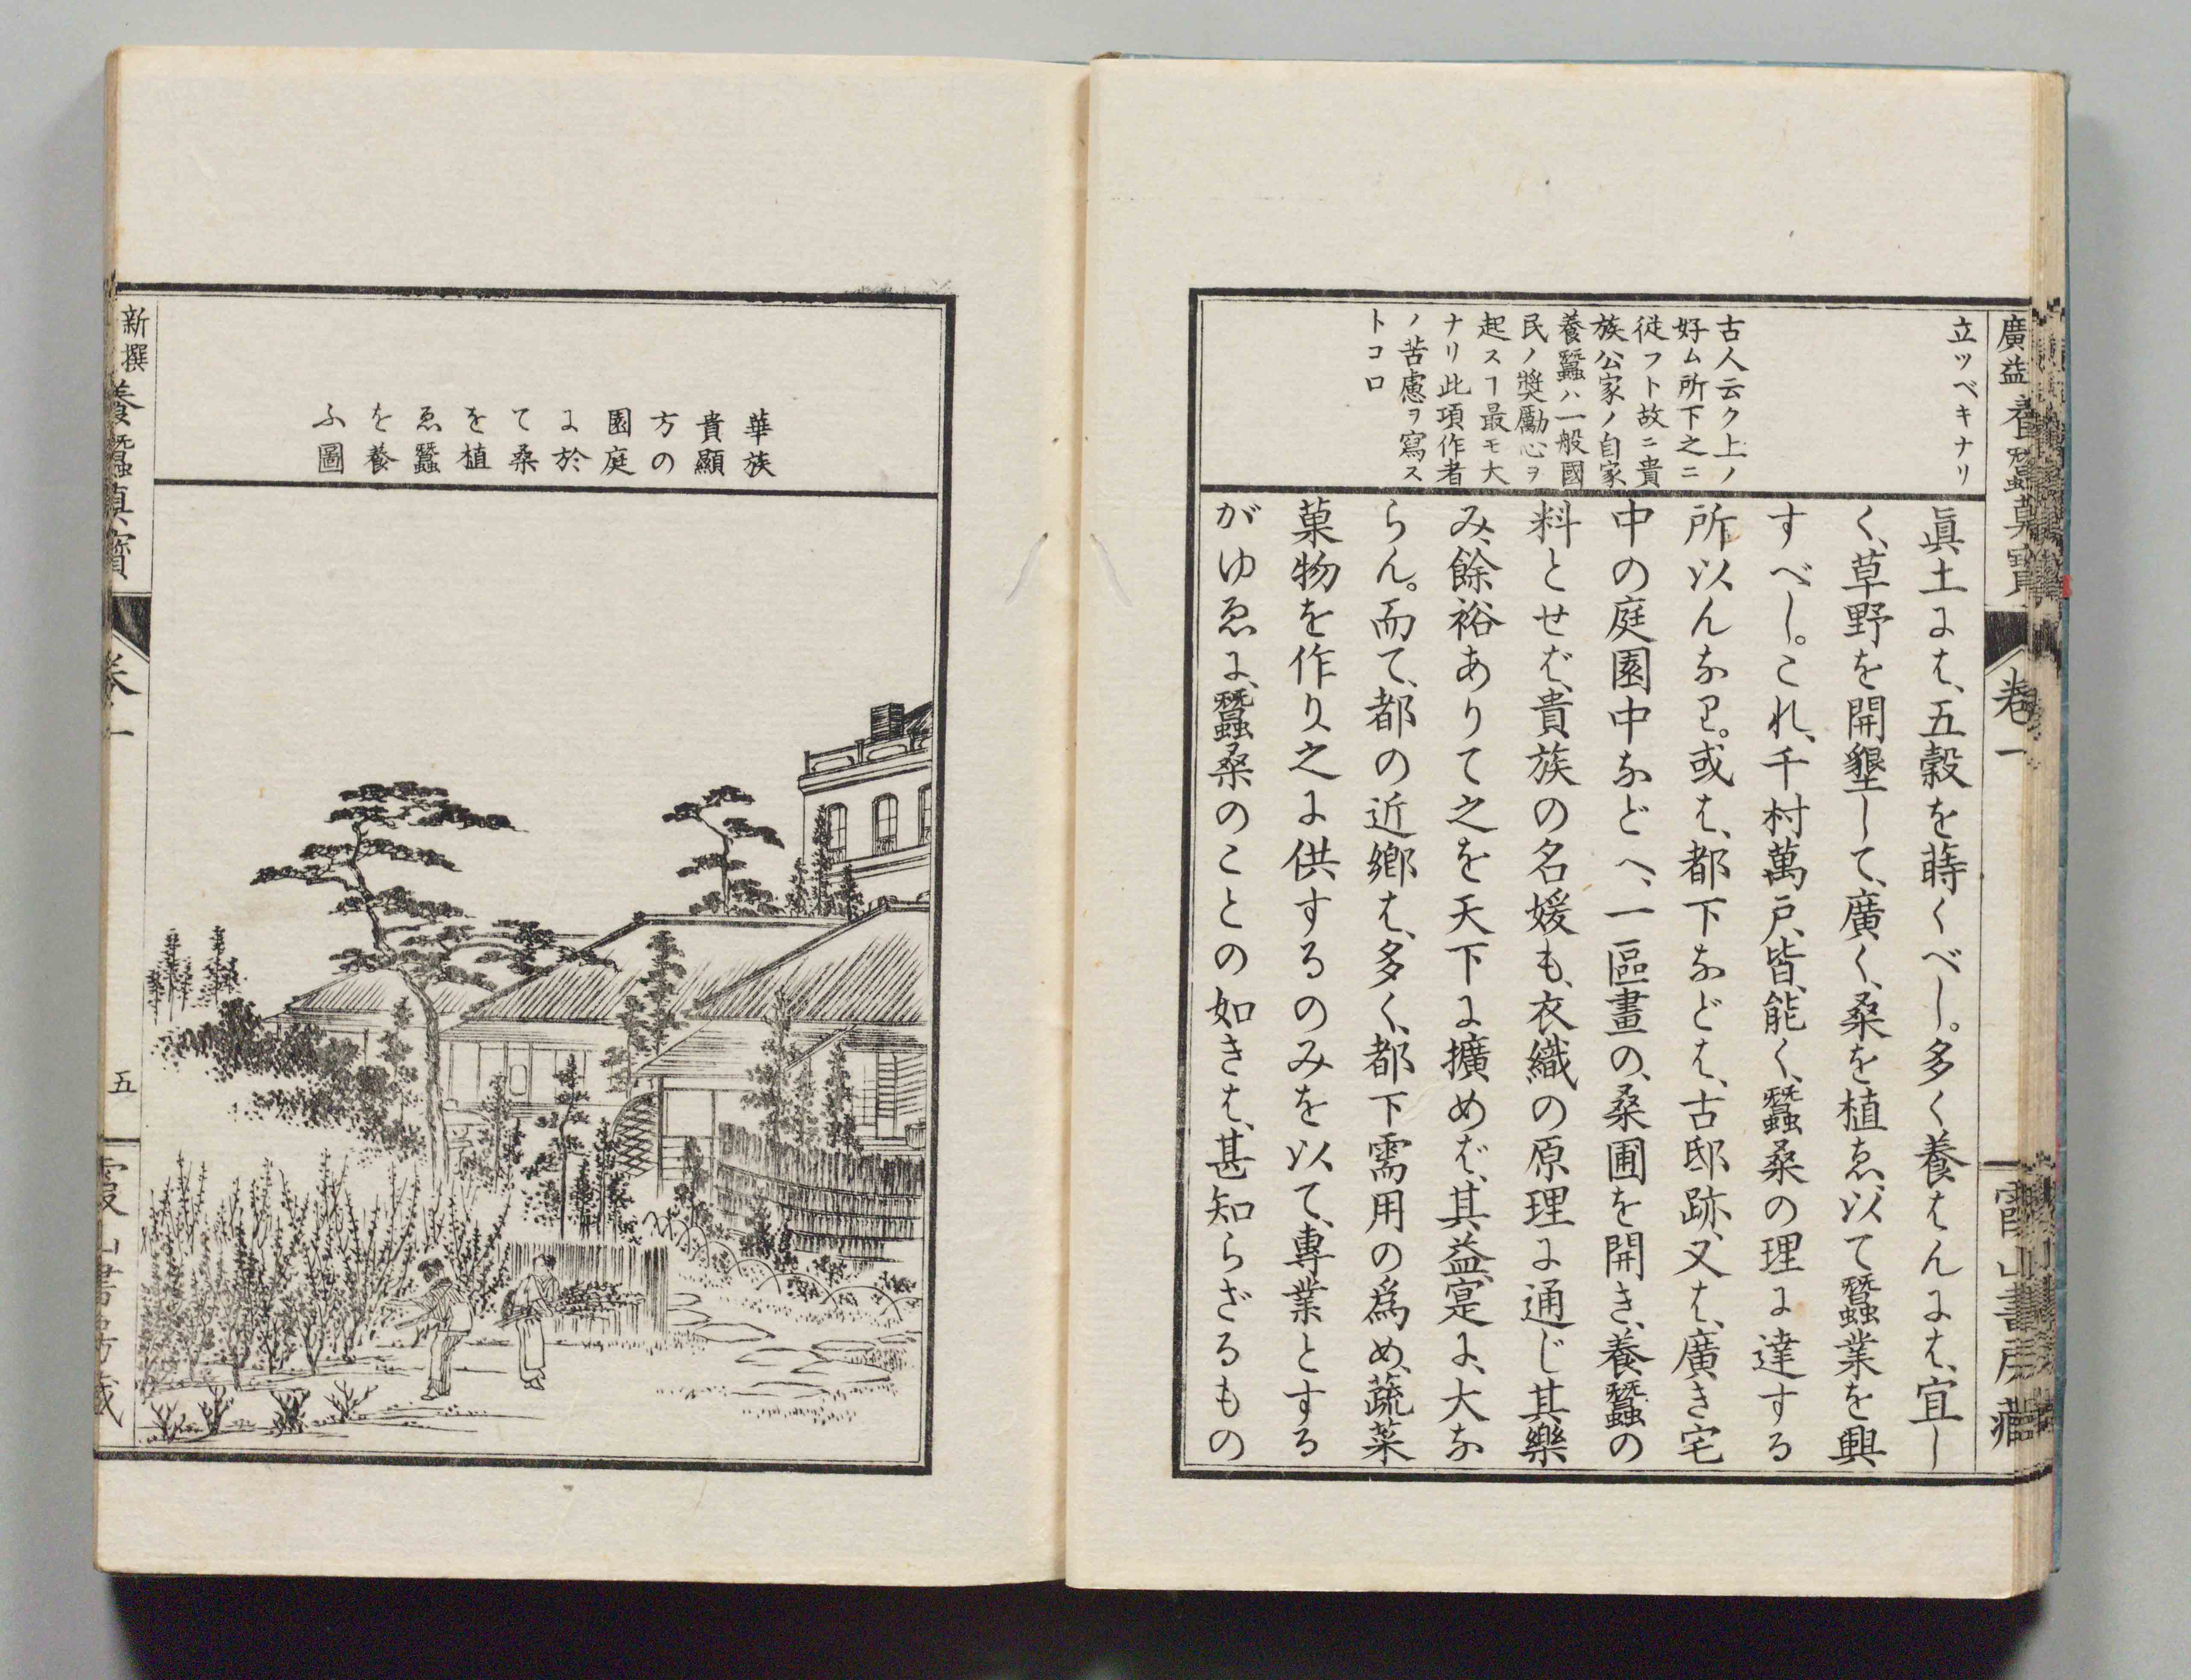 廣益養蠶真寶
卷一
霞山書房藏
立ツベキナリ
古人云ク上ノ
好ム所下之ニ
従フト故ニ貴
族公家ノ自家
養蠶ハ一般國
民ノ奬勵心ヲ
起スヿ最モ大
ナリ此項作者
ノ苦慮ヲ寫ス
トコロ
眞土には、五穀を蒔くべし。多く養はんには、宜し
く、草野を開墾して、廣く、桑を植ゑ、以て蠶業を興
すべし。これ、千村萬戸、皆、能く、蠶桑の理に達する
所以んなり。或は、都下などは、古邸跡、又は、廣き宅
中の庭園中などへ、一區畫の、桑圃を開き、養蠶の
料とせば、貴族の名媛も、衣織の原理に通じ其樂
み、餘裕ありて之を天下に擴めば、其益、寔に、大な
らん。而て、都の近鄕は、多く、都下需用の爲め、蔬菜
菓物を作り、之に供するのみを以て、專業とする
がゆゑに、蠶桑のことの如きは、甚知らざるもの
華族
貴顯
方の
園庭
に於
て桑
を植
ゑ蠶
を養
ふ圖
新撰養蠶真寶
卷一
五
霞山書房藏